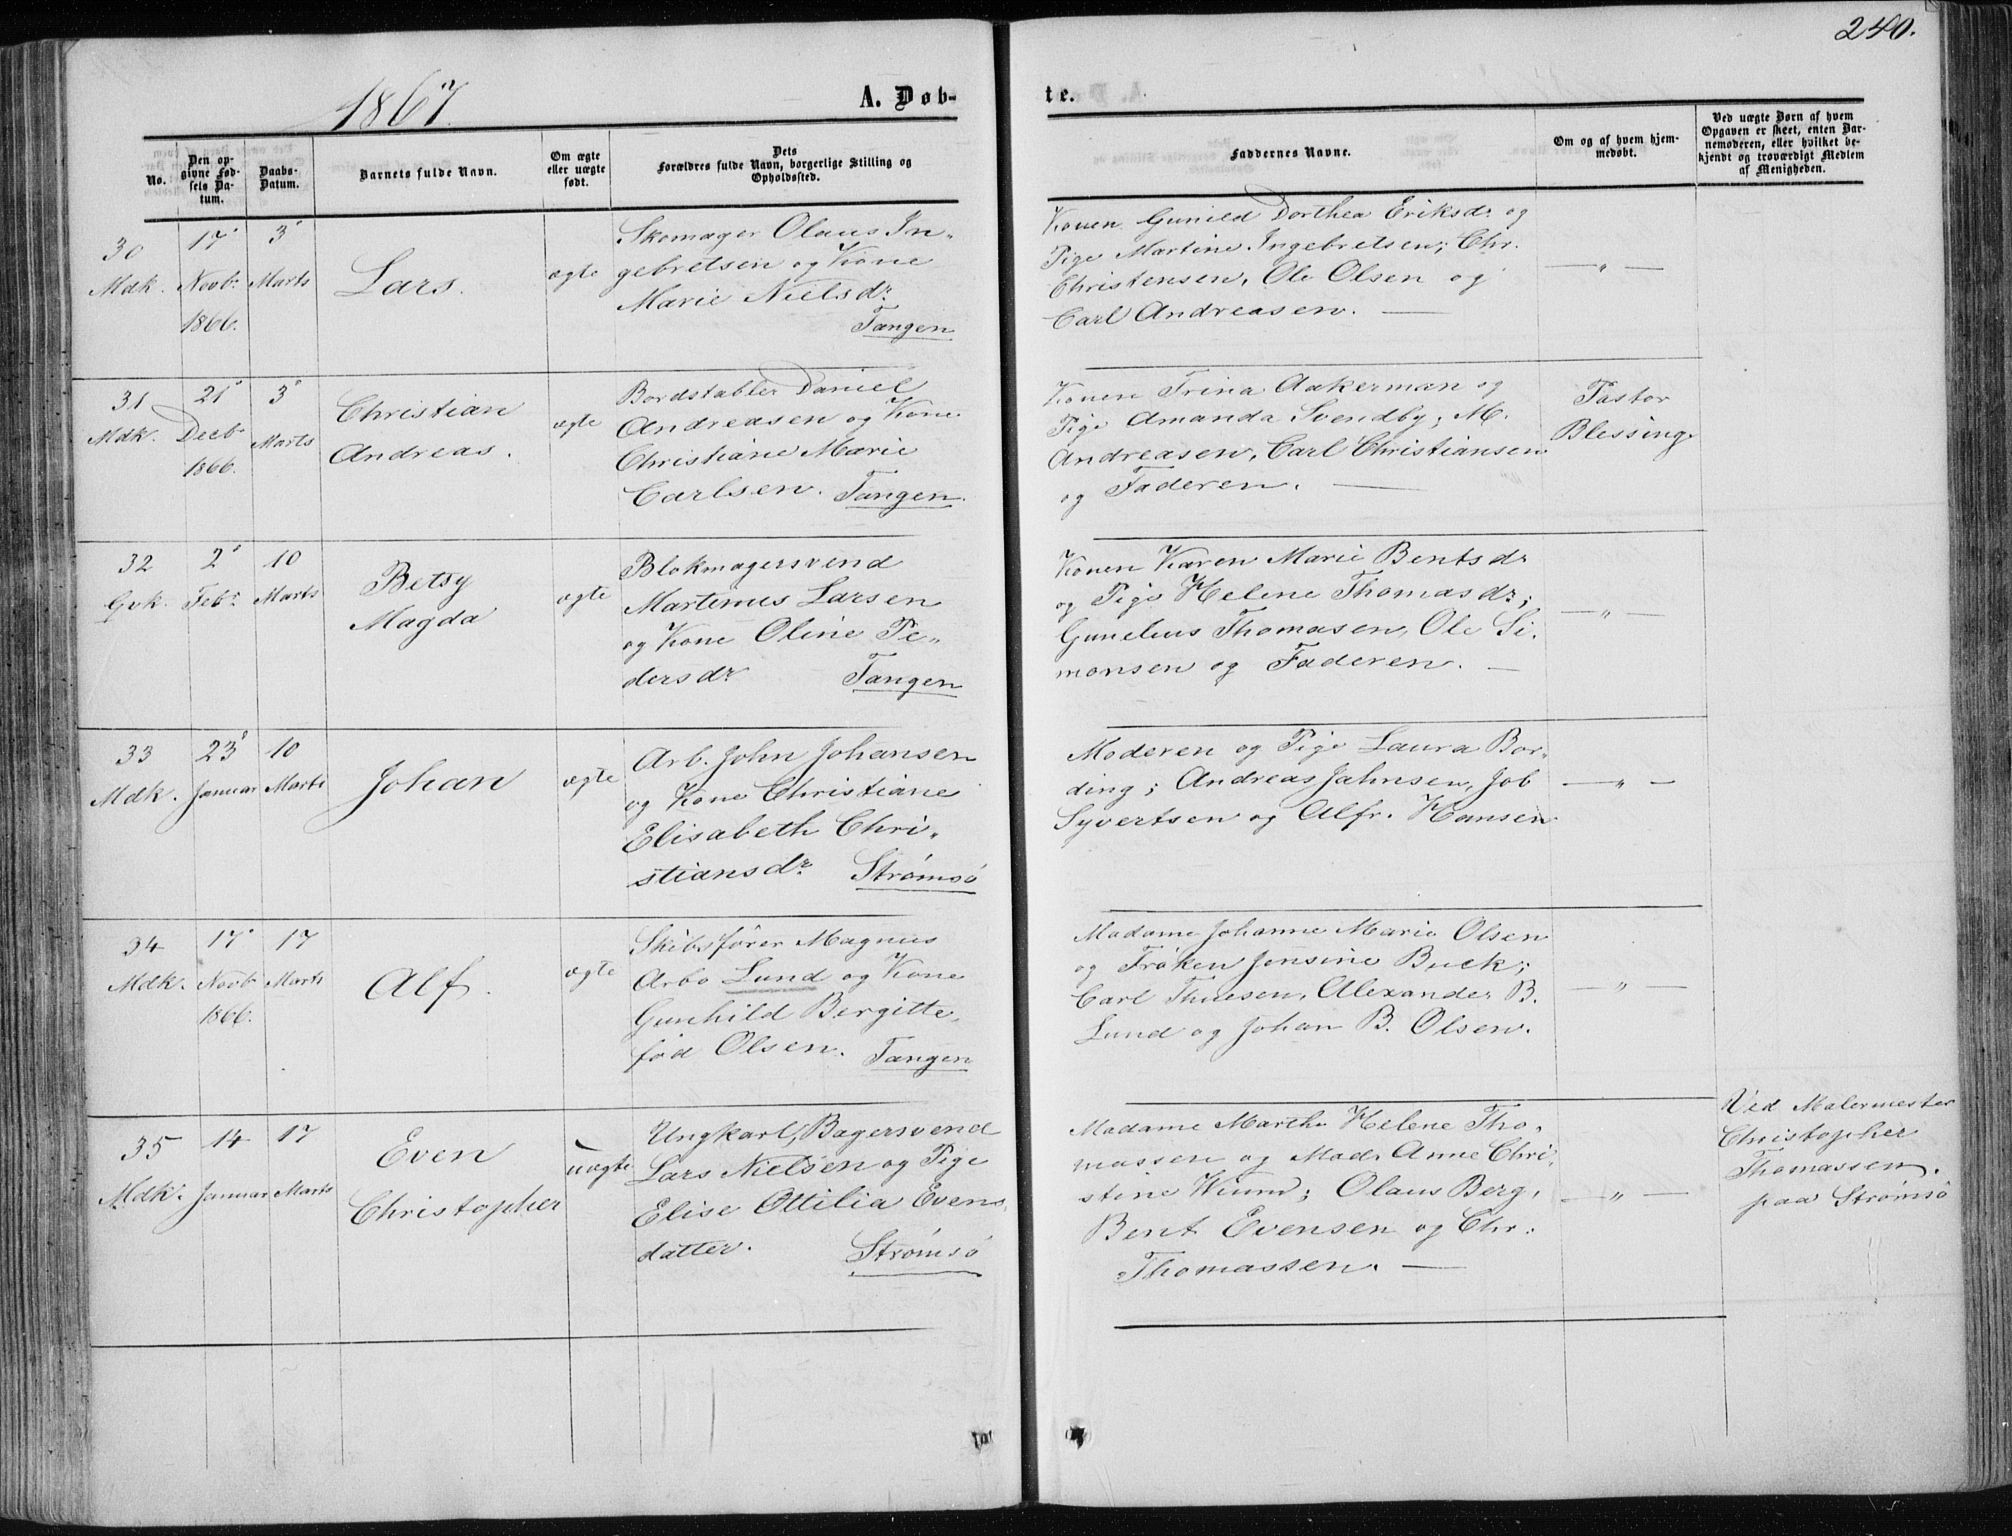 240.
1867.
A. Døb-
te.
No.
Den op-
givne Fød-
sels Da-
tum.
Daabs-
Datum.
Barnets fulde Navn.
Om ægte
eller uægte
født.
Dets
Forældres fulde Navn, borgerlige Stilling og
Opholdssted.
Faddernes Navne.
Om og af hvem hjem-
medøbt.
Ved uægte Børn af hvem
Opgaven er skeet, enten Bar-
nemoderen, eller hvilket be-
kjendt og troværdigt Medlem
af Menigheden.
30
Mdk.
17
Novbr
1866.
3
Marts
Lars.
ægte
Skomager Olaus In-
gebretsen og Kone
Marie Nielsdr
Tangen
Konen Gunild Dorthea Eriksdr og
Pige Martine Ingebretsen; Chr.
Christensen, Ole Olsen og
Carl Andreasen. —
— " —
31
Mdk.
21
Decbr
1866.
3
Marts
Christian
Andreas.
ægte
Bordstabler Daniel
Andreasen og Kone
Christiane Marie
Carlsen. Tangen.
Konen Trina Aakerman og
Pige Amanda Svendby; M.
Andreasen, Carl Christiansen
og Faderen. —
Pastor
Blessing.
32
Gvk.
2
Febr.
10
Marts
Betsy
Magda
ægte
Blokmagersvend
Martinus Larsen
og Kone Oline Pe-
dersdr Tangen
Konen Karen Marie Bentsdr
og Pige Helene Thomasdr;
Gunelius Thomasen, Ole Si-
monsen og Faderen. —
— " —
33
Mdk.
23
Januar
10
Marts
Johan
ægte
Arb. John Johansen
og Kone Christiane
Elisabeth Chri-
stiansdr. Strømsø
Moderen og Pige Laura Bor-
ding; Andreas Jahnsen, Job
Syvertsen og Alfr. Hansen
— " —
34
Mdk.
17
Novb
1866.
17
Marts
Alf.
ægte
Skibsfører Magnus
Arbo Lund og Kone
Gunhild Bergitte,
fød Olsen. Tangen
Madame Johanne Marie Olsen
og Frøken Jonsine Buck;
Carl Thuesen, Alexander B.
Lund og Johan B. Olsen.
— " —
35
Mdk.
14
Januar
17
Marts
Even
Christopher
uægte
Ungkarl, Bagersvend
Lars Nielsen og Pige
Elise Ottilia Evens-
datter. Strømsø
Madame Marthe Helene Tho-
massen og Mad. Anne Chri-
stine Wium; Olaus Berg,
Bent Evensen og Chr.
Thomassen. —
— " —
Ved Malermester
Christopher
Thomassen.
paa Strømsø